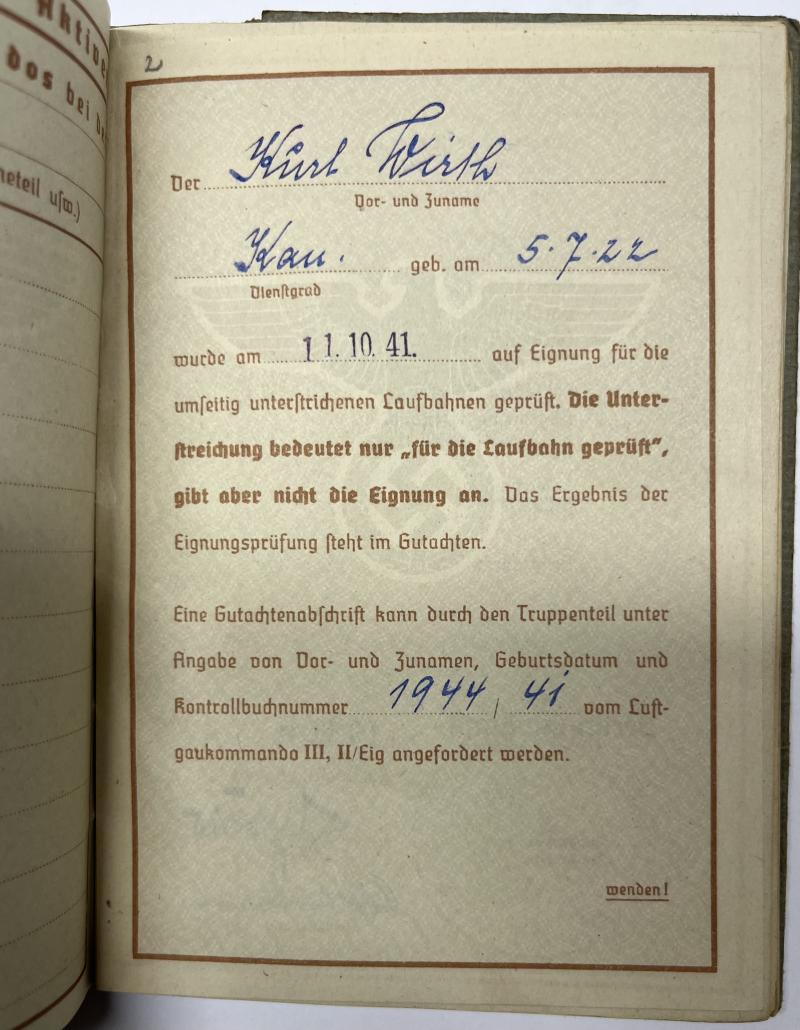 Aktive
dos bei d
neteil usw.)
2
Der Kurt Wirth
Vor- und Zuname
Kan. geb. am 5.7.22
Dienstgrad
wurde am 11.10.41. auf Eignung für die
umseitig unterstrichenen Laufbahnen geprüft. Die Unter-
streichung bedeutet nur „für die Laufbahn geprüft“,
gibt aber nicht die Eignung an. Das Ergebnis der
Eignungsprüfung steht im Gutachten.
Eine Gutachtenabschrift kann durch den Truppenteil unter
Angabe von Vor- und Zunamen, Geburtsdatum und
Kontrollbuchnummer 1944 / 41 vom Luft-
gaukommando III, II/Eig angefordert werden.
wenden!